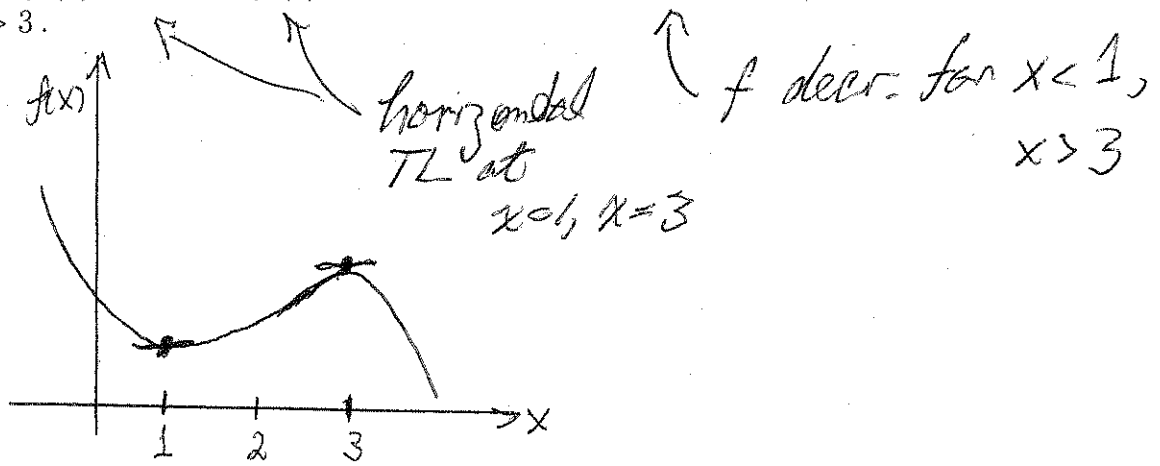 > 3.
f(x)
horizontal
TL at
x=1, x=3
f decr. for x < 1,
x > 3
x
1 2 3